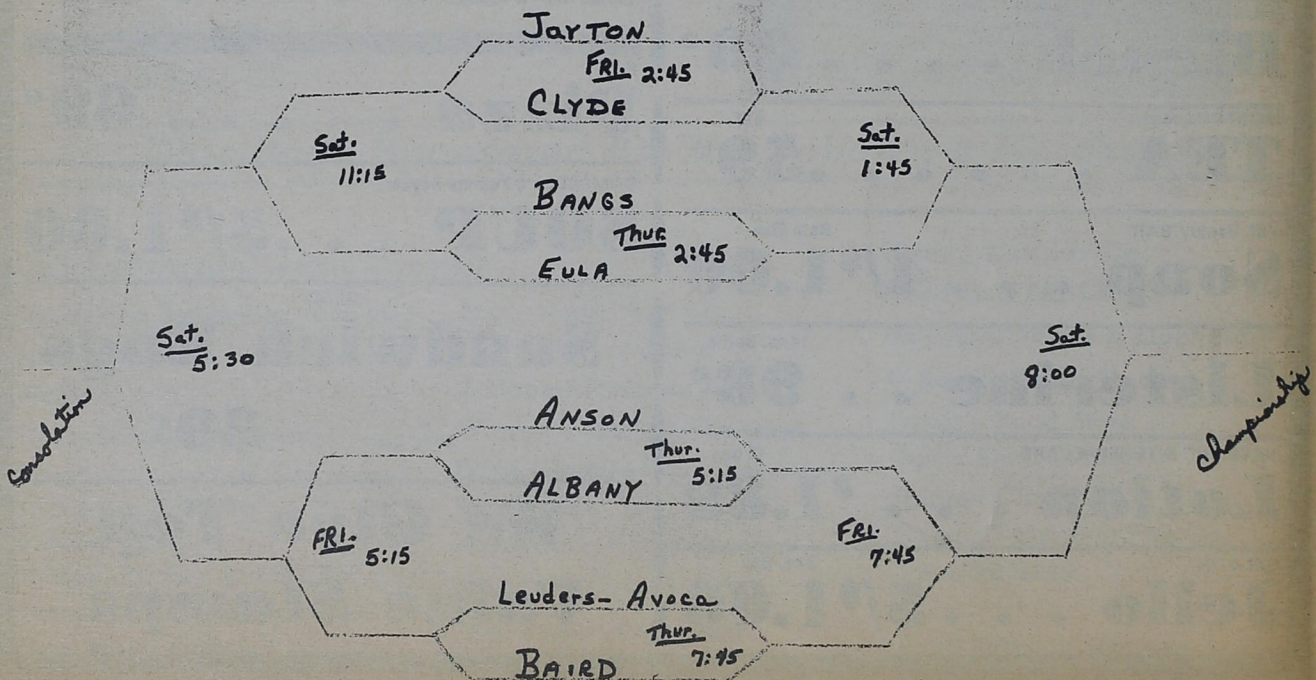 JayTON
FRI. 2:45
CLYDE
Sat.
11:15
Sat.
1:45
BANGS
Thur.
2:45
EULA
Sat.
5:30
Sat.
8:00
Consolation
Championship
ANSON
Thur.
5:15
ALBANY
FRI.
5:15
FRI.
7:45
Leuders- Avoca
Thur.
7:45
BAIRD